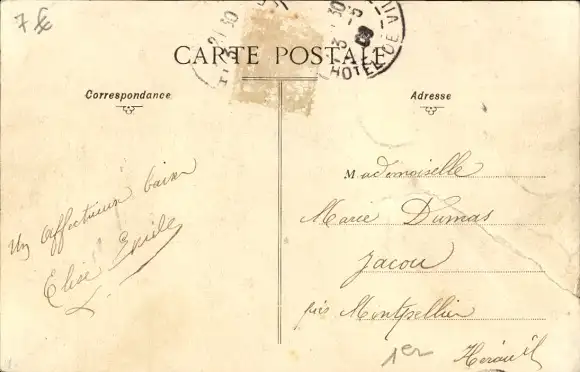 7 €
CARTE POSTALE
HOTEL DE
Correspondance
Adresse
Un affectueux baiser
Elise Emile
Mademoiselle
Marie Dumas
Jacou
près Montpellier
1er
Hérault